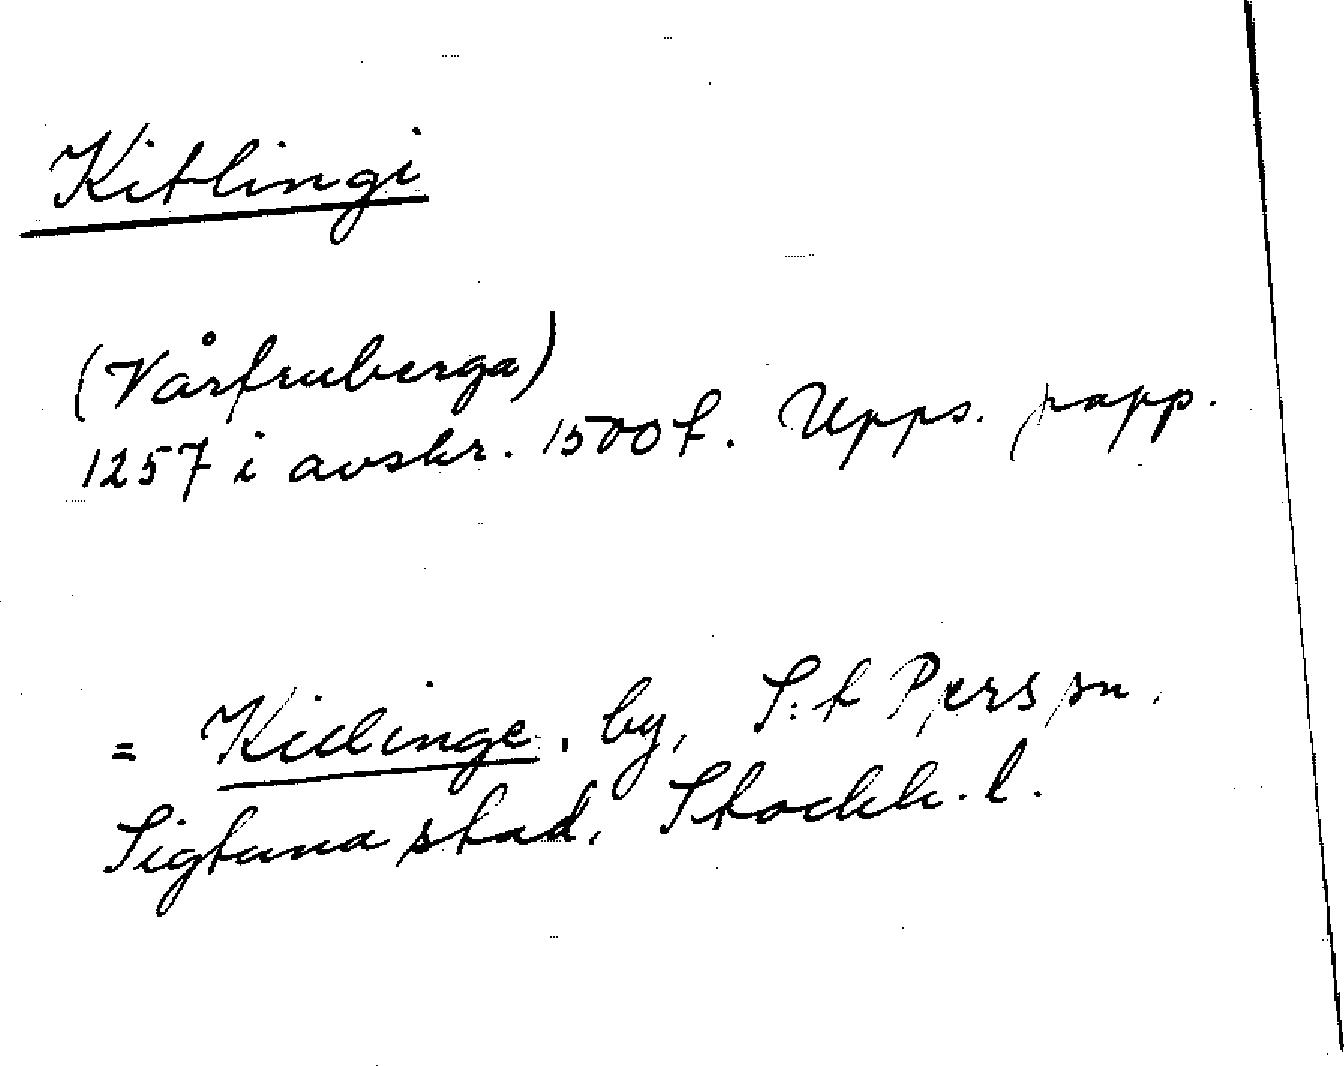 Kitlingi
(Vårfruberga)
1257 i avskr. 1500t. Upps. papp.
= Killinge, by, S:t Pers sn,
Sigtuna stad, Stockh. l.